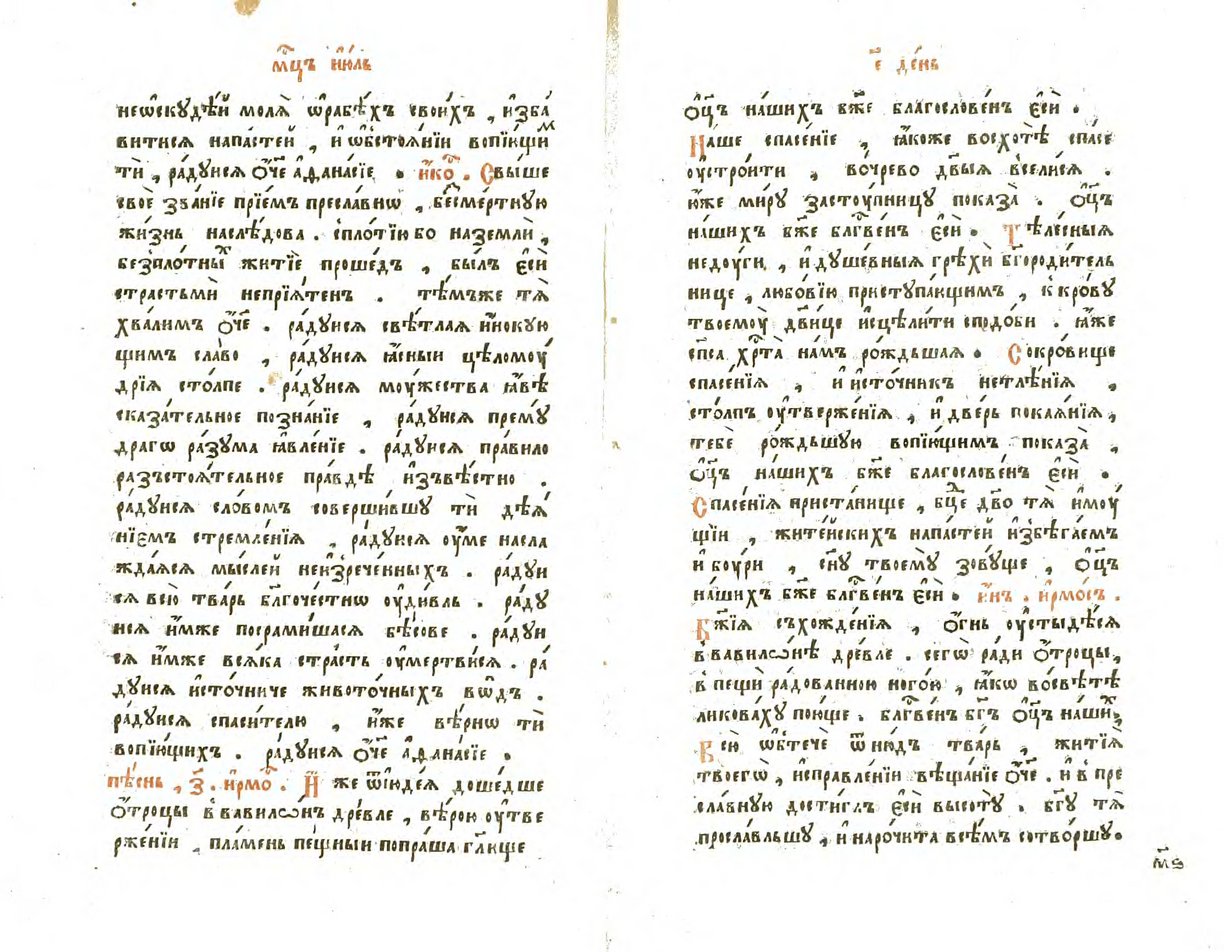 мⷭ҇цъ і҆ю́ль
неѡ̑скꙋдѣ́й молѧ̀ ѡ҆рабѣ́хъ свои́хъ , и҆зба́
витисѧ напа́стей , и҆ ѡ҆бстоѧ́нїи вопїю́щиⷨ
тѝ , ра́дꙋисѧ ѻ҆́ч҃е а҆ѳана́сїе . и҆́коⷭ҇ . Свы́ше
своѐ зва́нїе прїе́мъ пресла́внѡ , бесме́ртнꙋю
жи́знь наслѣ́дова . спло́тїю бо наземлѝ ,
безпло́тныⷯ житїѐ проше́дъ , бы́лъ є҆сѝ
страстьмѝ непрїѧ́тенъ . тѣ́мъже тѧ̀
хва́лимъ ѻ҆́ч҃е . ра́дꙋисѧ свѣ́тлаѧ и҆́нокꙋю
щимъ сла́во , ра́дꙋисѧ ꙗ҆́сныи цѣломоꙋ́
дрїѧ сто́лпе . ра́дꙋисѧ моꙋ́жества ꙗ҆́вѣ
сказа́тельное позна́нїе , ра́дꙋисѧ премꙋ́
драгѡ ра́зꙋма ꙗ҆вле́нїе . ра́дꙋисѧ пра́вило
разъстоѧ́тельное пра́вдѣ и҆звѣ́стно .
ра́дꙋисѧ сло́вомъ соверши́вшꙋ тѝ дѣѧ́
нїемъ стремле́нїѧ , ра́дꙋисѧ оу҆́ме насла
жда́ѧсѧ мы́слей неи҆зрече́нныхъ . ра́дꙋи
сѧ всю̀ тва́рь бл҃гоче́стнѡ оу҆ди́вль . ра́дꙋ
исѧ и҆́мже посрами́шасѧ бѣ́сове . ра́дꙋи
сѧ и҆́мже всѧ́ка стра́сть оу҆мертви́сѧ . ра́
дꙋисѧ и҆сто́чниче животочныхъ во́дъ .
ра́дꙋисѧ спаси́телю , и҆́же вѣ́рнѡ тѝ
вопїю́щихъ . ра́дꙋисѧ ѻ҆́ч҃е а҆ѳана́сїе .
пѣ́снь , з҃ . і҆рмо́ⷭ҇ . И҆̀же ѿ і҆ꙋде́ѧ доше́дше
ѻ҆́троцы в̾вавилѡ́нъ дре́вле , вѣ́рою оу҆тве
рже́нїи , пла́мень пе́щныи попра́ша гл҃юще
е҃ де́нь
ѻ҆ц҃ъ на́шихъ бж҃е благослове́нъ є҆сѝ .
На́ше спасе́нїе , ꙗ҆́коже восхотѣ̀ спа́се
оу҆стро́ити , во́чрево дв҃ыѧ всели́сѧ .
ю҆́же ми́рꙋ застоꙋ́пницꙋ показа̀ . ѻ҆ц҃ъ
на́шихъ бж҃е блⷭ҇ве́нъ є҆сѝ . Тѣле́сныѧ
недоу́ги , и҆ дꙋше́вныѧ грѣхѝ бг҃ороди́тель
нице , любо́вїю пристꙋпа́ющимъ , к̾кро́вꙋ
твоемоꙋ̀ дв҃ице и҆сцѣли́ти сподо́би . ꙗ҆́же
сп҃са хрⷭ҇та̀ на́мъ ро́ждьшаѧ . Сокро́вище
спасе́нїѧ , и҆ и҆сто́чникъ нетлѣ́нїѧ ,
сто́лпъ оу҆тверже́нїѧ , и҆ две́рь покаѧ́нїѧ ,
тебѐ ро́ждьшꙋю вопїю́щимъ показа̀ ,
ѻ҆ц҃ъ на́шихъ бж҃е благослове́нъ є҆сѝ .
Спасе́нїѧ приста́нище , бц҃е дв҃о тѧ̀ и҆моꙋ́
щїи , жите́йскихъ напа́стей и҆збѣга́емъ
и҆ боу́ри , сн҃ꙋ твоемꙋ̀ зовꙋ́ще , ѻ҆ц҃ъ
на́шихъ бж҃е блⷭ҇ве́нъ є҆сѝ . и҆́нъ . і҆рмо́съ .
Бж҃їѧ съхожде́нїѧ , ѻ҆́гнь оу҆стыдѣ́сѧ
в̾вавилѡ́нѣ дре́вле . сегѡ̀ ра́ди ѻ҆́троцы ,
в̾ пещѝ ра́дованною ного́ю , ꙗ҆́кѡ во́свѣтѣ
ликова́хꙋ пою́ще . блⷭ҇ве́нъ бг҃ъ ѻ҆ц҃ъ на́шиⷯ
Всю̀ ѡ҆бтечѐ ѿню́дъ тва́рь , житїѧ̀
твоегѡ̀ , и҆справле́нїи вѣща́нїе ѻ҆́ч҃е . и҆ в̾ пре
сла́внꙋю дости́глъ є҆сѝ высотꙋ̀ . бг҃ꙋ тѧ̀
просла́вльшꙋ , и҆ наро́чита всѣ́мъ сотво́ршꙋ .
м҃ѕ